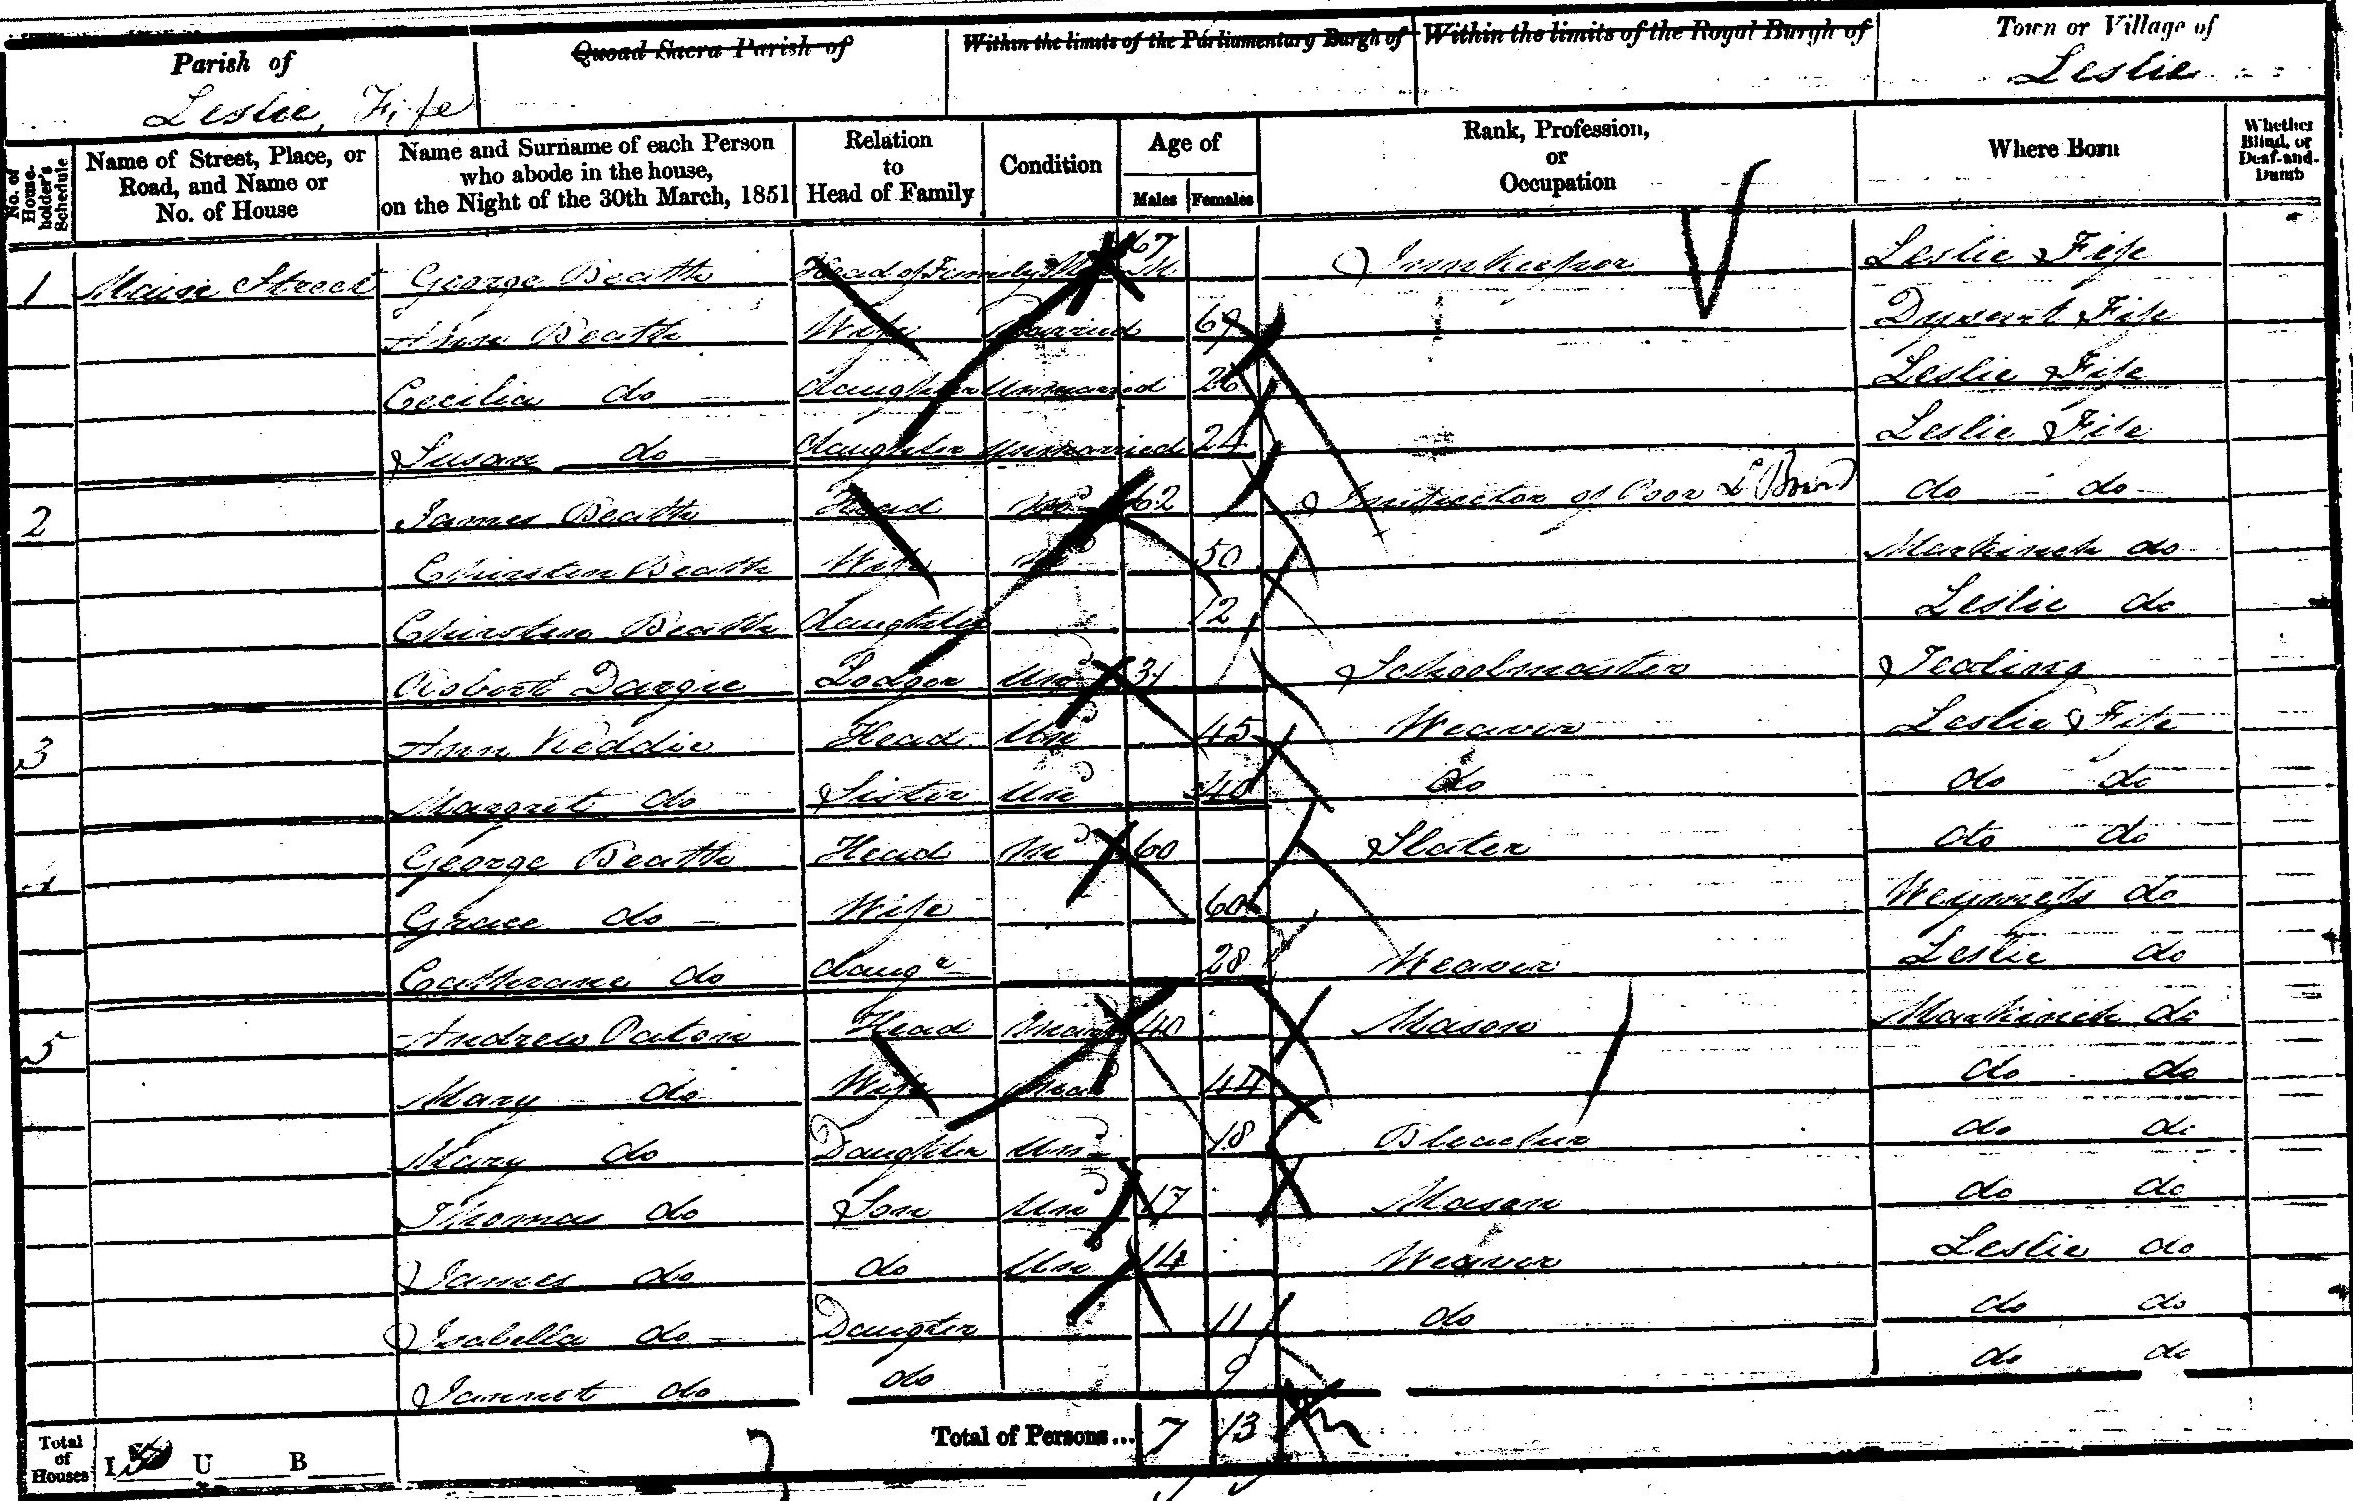 Parish of
Leslie, Fife
Quoad Sacra Parish of
Within the limits of the Parliamentary Burgh of
Within the limits of the Royal Burgh of
Town or Village of
Leslie
No. of House-holder's Schedule
Name of Street, Place, or Road, and Name or No. of House
Name and Surname of each Person who abode in the house, on the Night of the 30th March, 1851
Relation to Head of Family
Condition
Age of
Males Females
Rank, Profession, or Occupation
Where Born
Whether Blind, or Deaf-and-Dumb
1 Main Street George Beath Head of Family 67 Innkeeper Leslie Fife
Ann Beath Wife Married 69 Dysart Fife
Cecilia do Daughter Unmarried 26 Leslie Fife
Susan do daughter Unmarried 24 Leslie Fife
2 James Beath Head 62 Inspector of Poor do do
Christin Beath Wife 50 Markinch do
Christin Beath daughter 12 Leslie do
Robert Dargie Lodger Un 31 Schoolmaster Tealing
3 Ann Keddie Head Un 45 Weaver Leslie Fife
Margret do Sister Un 40 do do do
4 George Beath Head M 60 Slater do do
Grace do Wife 60 Weymess do
Cathrane do daugr 28 Weaver Leslie do
5 Andrew Paton Head Mar 40 Mason Markinch do
Mary do Wife Mar 44 do do
Mary do Daughter Un 18 Bleacher do do
Thomas do Son Un 17 Mason do do
James do do Un 14 Weaver Leslie do
Isabella do Daugter 11 do do do
Jannet do do 9 do do
Total of Houses I 5 U B Total of Persons... 7 13